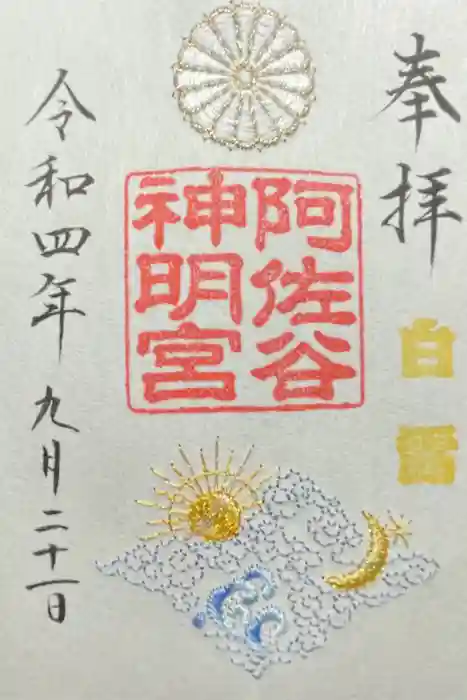 奉拝
白
阿佐谷
神明宮
令和四年九月二十一日